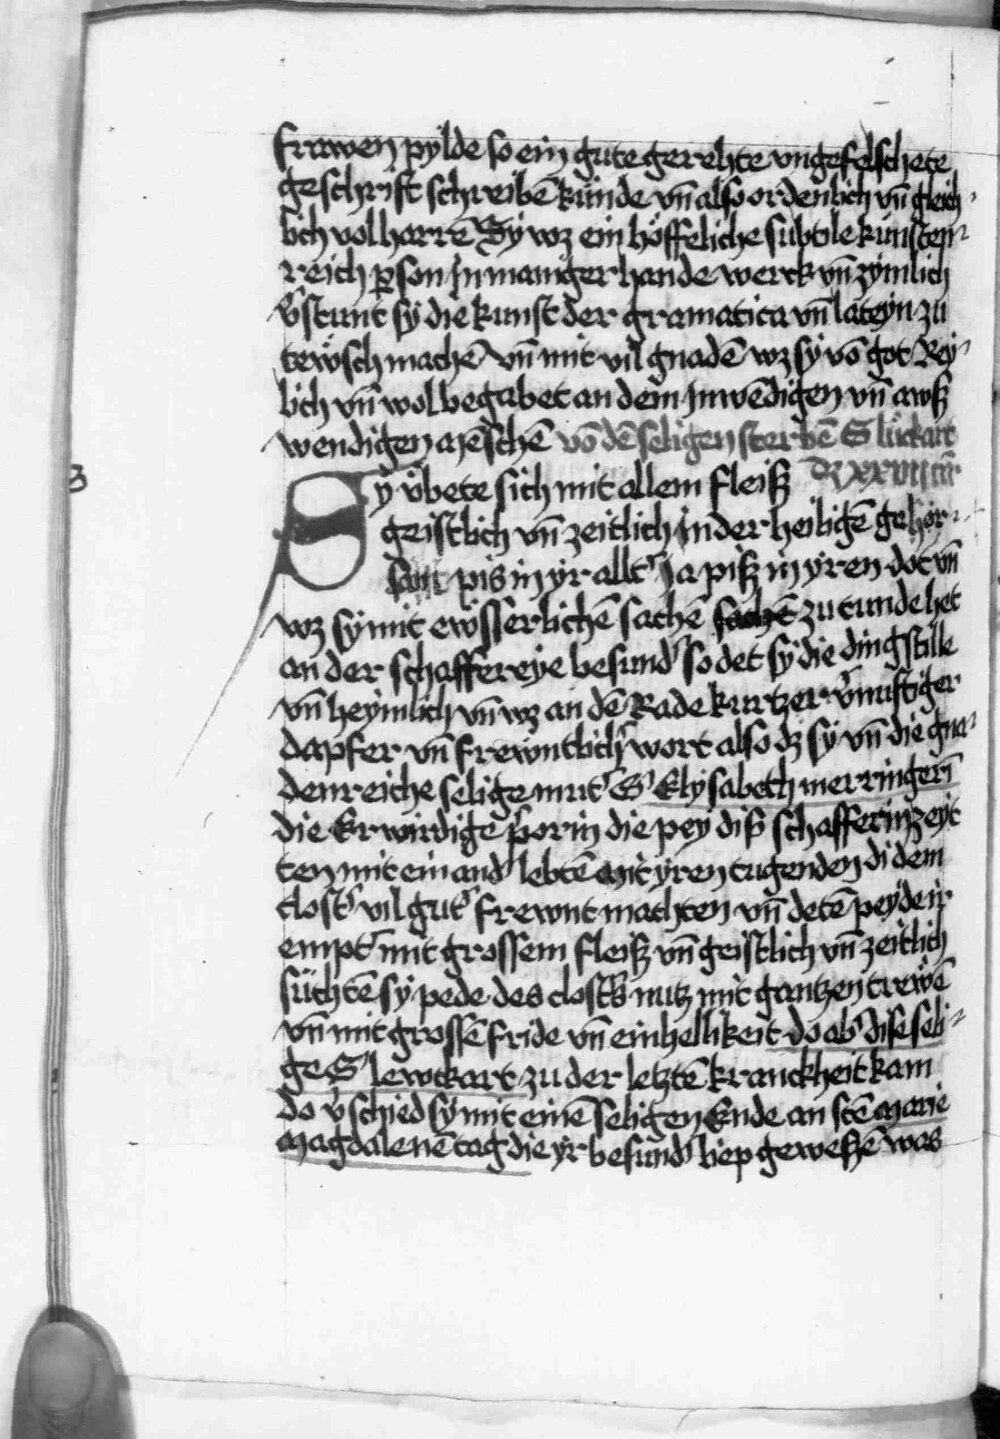 frawen pylde so ein gute gerehte vngefelschete
geschrift schreibē kunde vn̄ also ordenlich vn̄ gleich-
lich volharrē Sy wz ein höffeliche subtile künsten-
reich ꝑson Jn maniger hande werck vn̄ zymlich
v̓stunt sy die kunst der gramatica vn̄ lateyn zu
tewsch machē vn̄ mit vil gnadē wz sy vō got Rey-
lich vn̄ wol begabet an dem Jnwēdigen vn̄ awß
wendigen mēschē vō dē seligen sterbē S lückart
Dz xxvii
Sy v̈bete sich mit allem fleiß
geistlich vn̄ zeitlich Jn der heiligē gehor-
sam pis in yr allt̓ Ja piß in yren dot vn̄
wz sy mit ewsserlichē sachē zu tunde het
an der schaffereye besund̓ so det sy die ding stille
vn̄ heymlich vn̄ wz an dē Rade kurtzer v̓nuftiger
dapfer vn̄ frewntlich̓ wort also dz sy vn̄ die gna-
denreiche selige mut̓ S Elysabeth merringerī
die Erwirdige p̓orin die pey diß schafferin zeyt
ten mit ein and̓ lebtē mit yren tugenden di dem
clost̓ vil gut̓ frewnt machten vn̄ detē peyde ir
empt̓ mit grossem fleiß vn̄ geistlich vn̄ zeitlich
süchtē sy pede des clost̓s nutz mit gantzen trewē
vn̄ mit grossē fride vn̄ einhellikeit do ab̓ dise seli-
ge S lewckart zu der letztē kranckheit kam
do v̓schied sy mit einē seligen Ende an sctē marie
magdalenē tag die yr besund̓ liep geweßē was